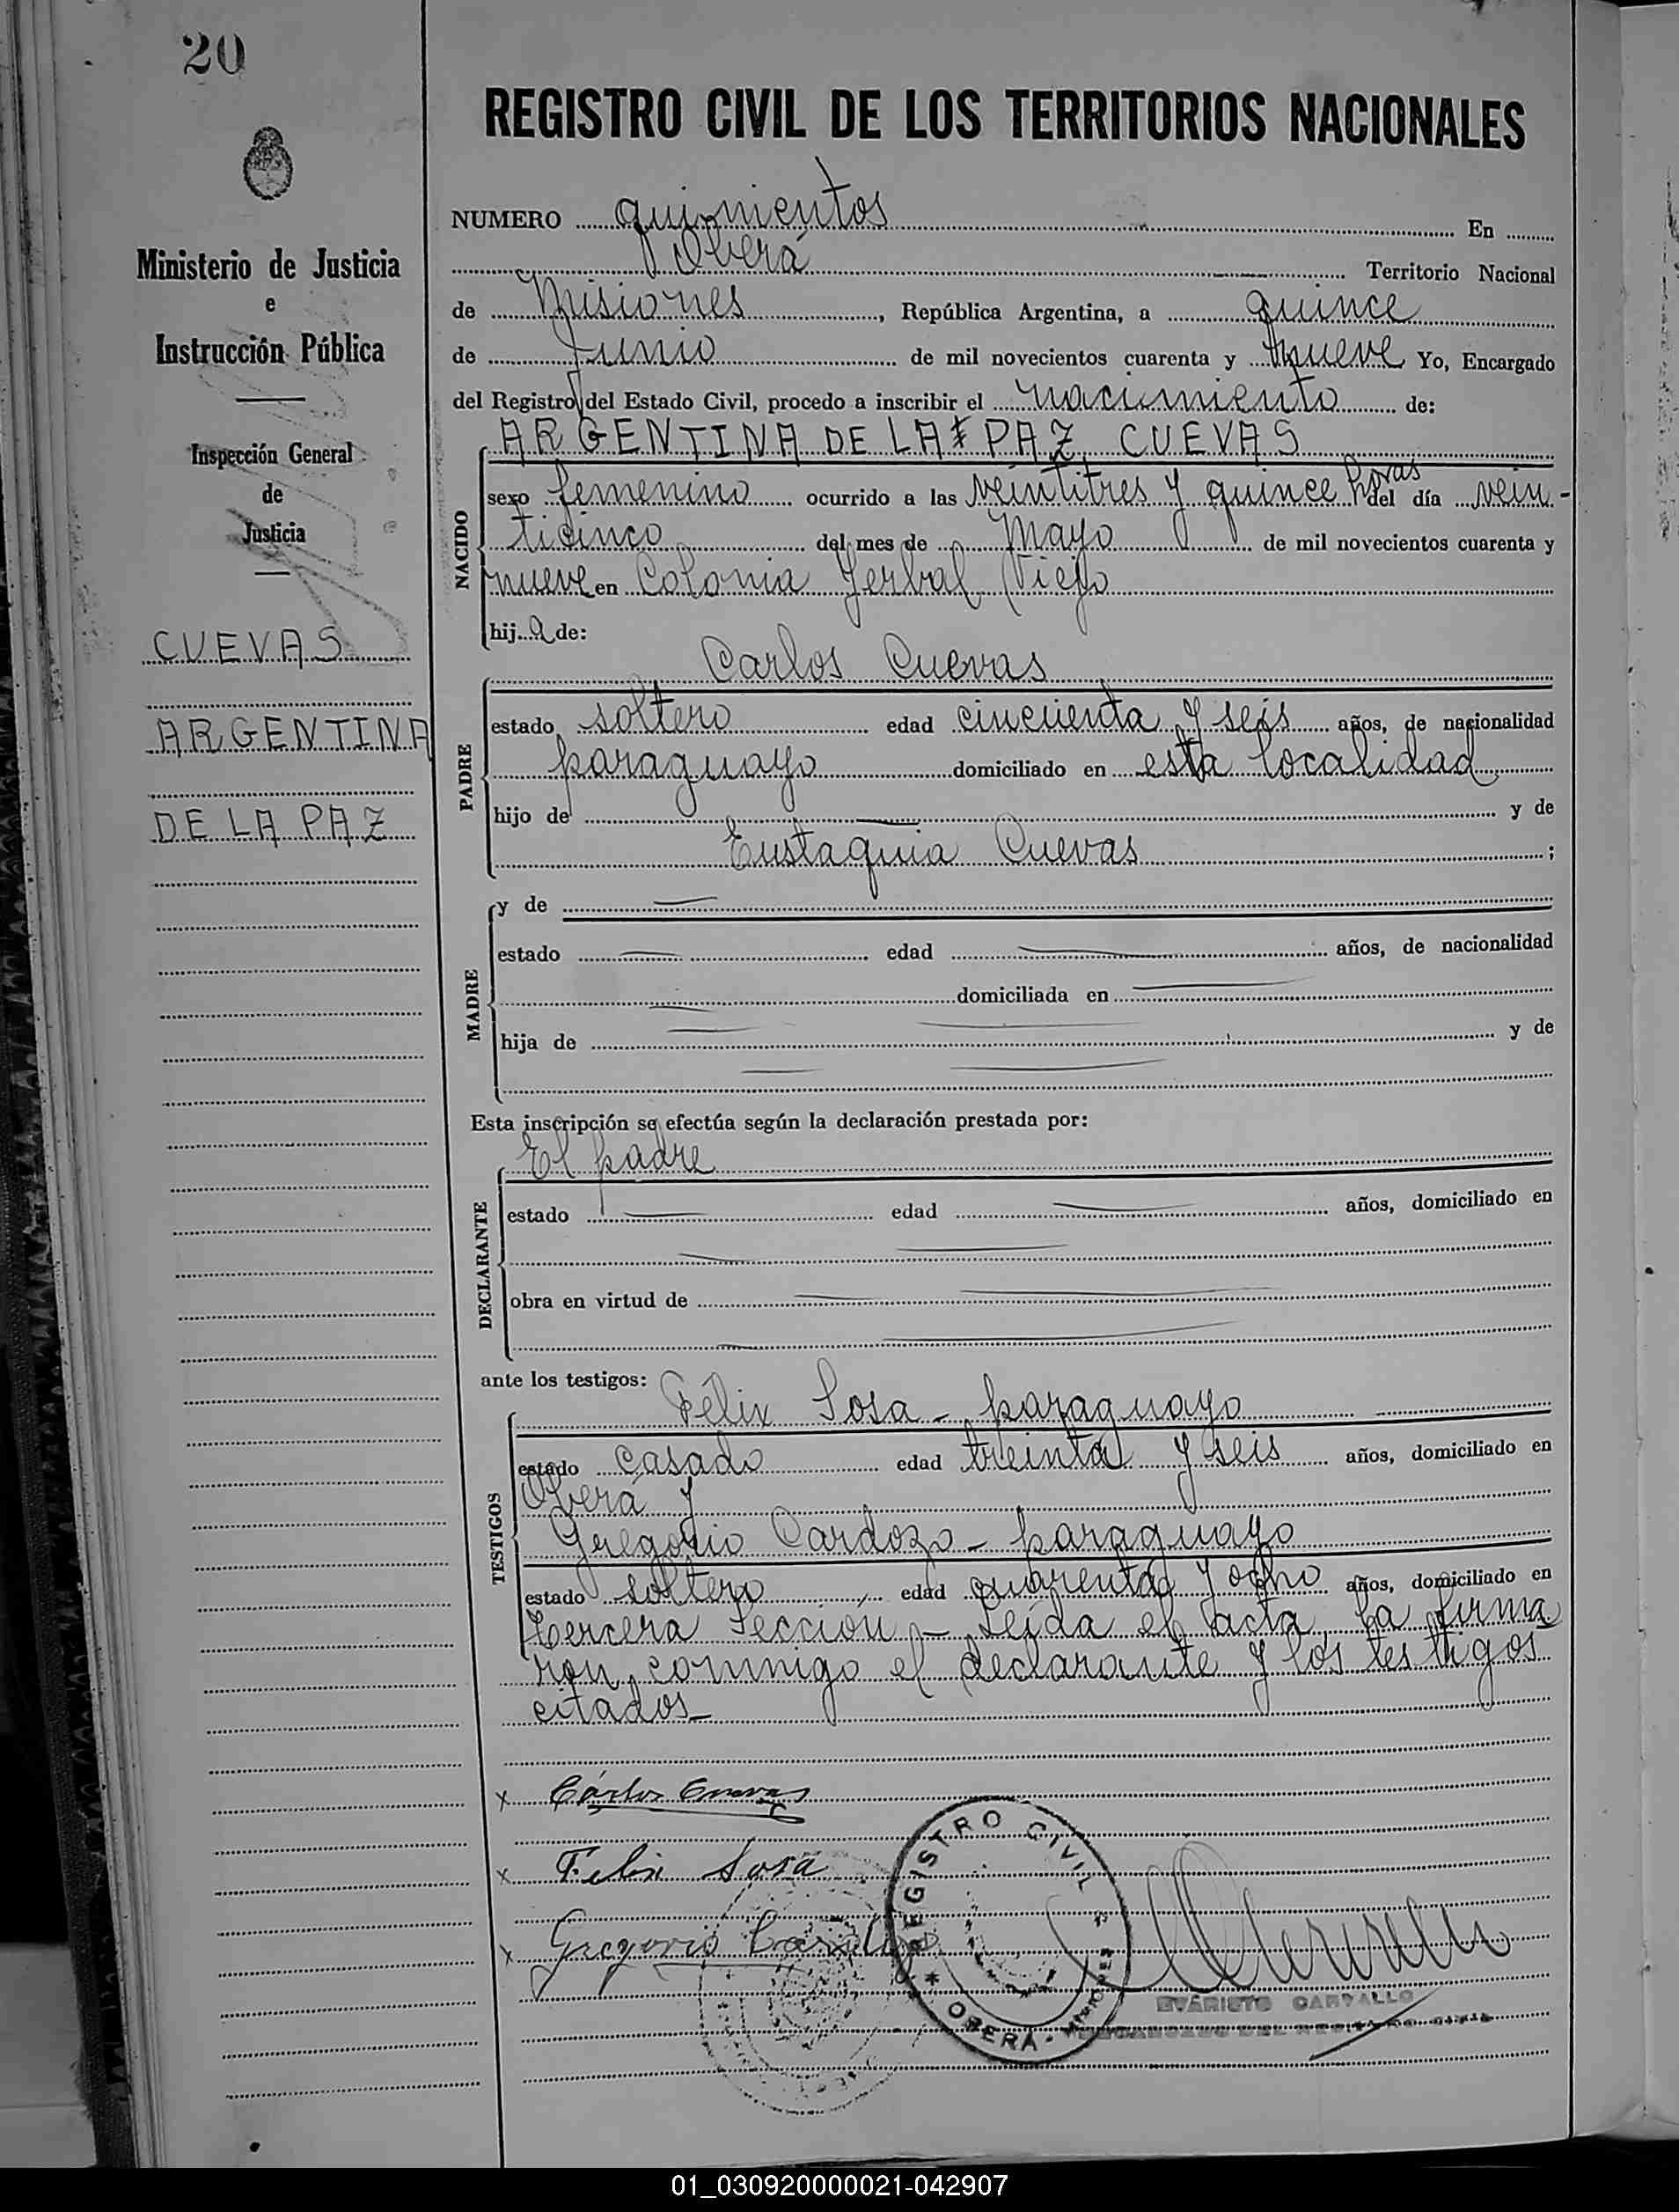 20
Ministerio de Justicia
e
Instrucción Pública
Inspección General
de
Justicia
CUEVAS
ARGENTINA
DE LA PAZ
REGISTRO CIVIL DE LOS TERRITORIOS NACIONALES
NUMERO quinientos En
Oberá Territorio Nacional
de Misiones, República Argentina, a quince
de Junio de mil novecientos cuarenta y nueve Yo, Encargado
del Registro del Estado Civil, procedo a inscribir el nacimiento de:
ARGENTINA DE LA PAZ CUEVAS
NACIDO
sexo femenino ocurrido a las veintitres y quince horas del día vein-
ticinco del mes de Mayo de mil novecientos cuarenta y
nueve en Colonia Yerbal Viejo
hija de:
Carlos Cuevas
PADRE
estado soltero edad cincuenta y seis años, de nacionalidad
paraguayo domiciliado en esta localidad
hijo de — y de
Eustaquia Cuevas ;
MADRE
y de —
estado — edad — años, de nacionalidad
— domiciliada en —
hija de — — y de
— —
Esta inscripción se efectúa según la declaración prestada por:
El padre
DECLARANTE
estado — edad — años, domiciliado en
— —
obra en virtud de — —
— —
ante los testigos:
Félix Sosa - paraguayo
TESTIGOS
estado casado edad treinta y seis años, domiciliado en
Oberá y
Gregorio Cardozo - paraguayo
estado soltero edad cuarenta y ocho años, domiciliado en
tercera Sección - Leída el acta, la firma
ron conmigo el declarante y los testigos
citados
x Cárlos Cuevas
x Felix Sosa
x Gregorio Cardozo
REGISTRO CIVIL
* OBERÁ - MISIONES *
EVARISTO CARVALLO
ENCARGADO DEL REGISTRO CIVIL
01_030920000021-042907